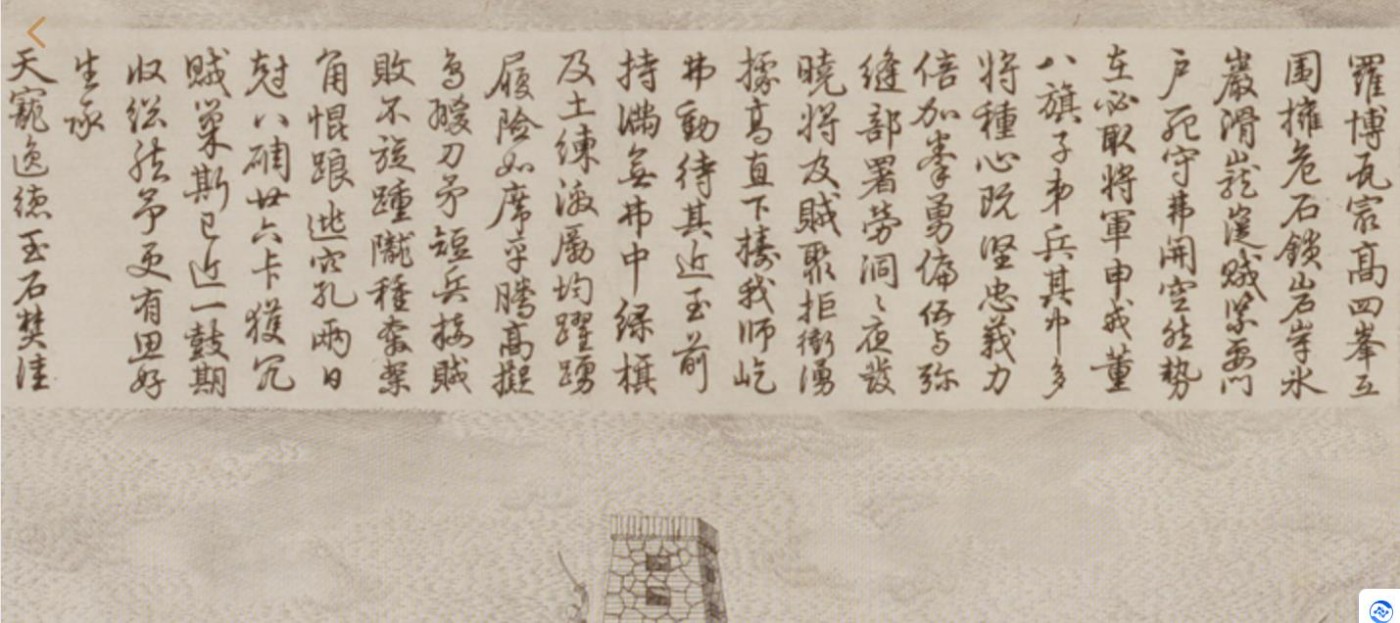 羅博瓦冣高四峯互
围擁危石鎖岩岸氷
巖滑巃嵸賊緊要門
户死守弗開空然勢
在必取將軍申戒董
八旗子弟兵其中多
將種心既堅忠義力
倍加拳勇偏伍与弥
縫部署勞洞〻夜發
曉將及賊聚拒衝湧
據高直下擣我師屹
弗動待其近至前
持滿無弗中綠旗
及土練激厲均躍踴
履險如席平騰高擬
鳥翪刀矛短兵接賊
敗不旋踵隴種奔案
角惃踉逃穴孔兩日
尅八碉廿六卡獲冗
賊巢斯已近一鼓期
收総然予更有思好
生承
天寵逸德玉石焚